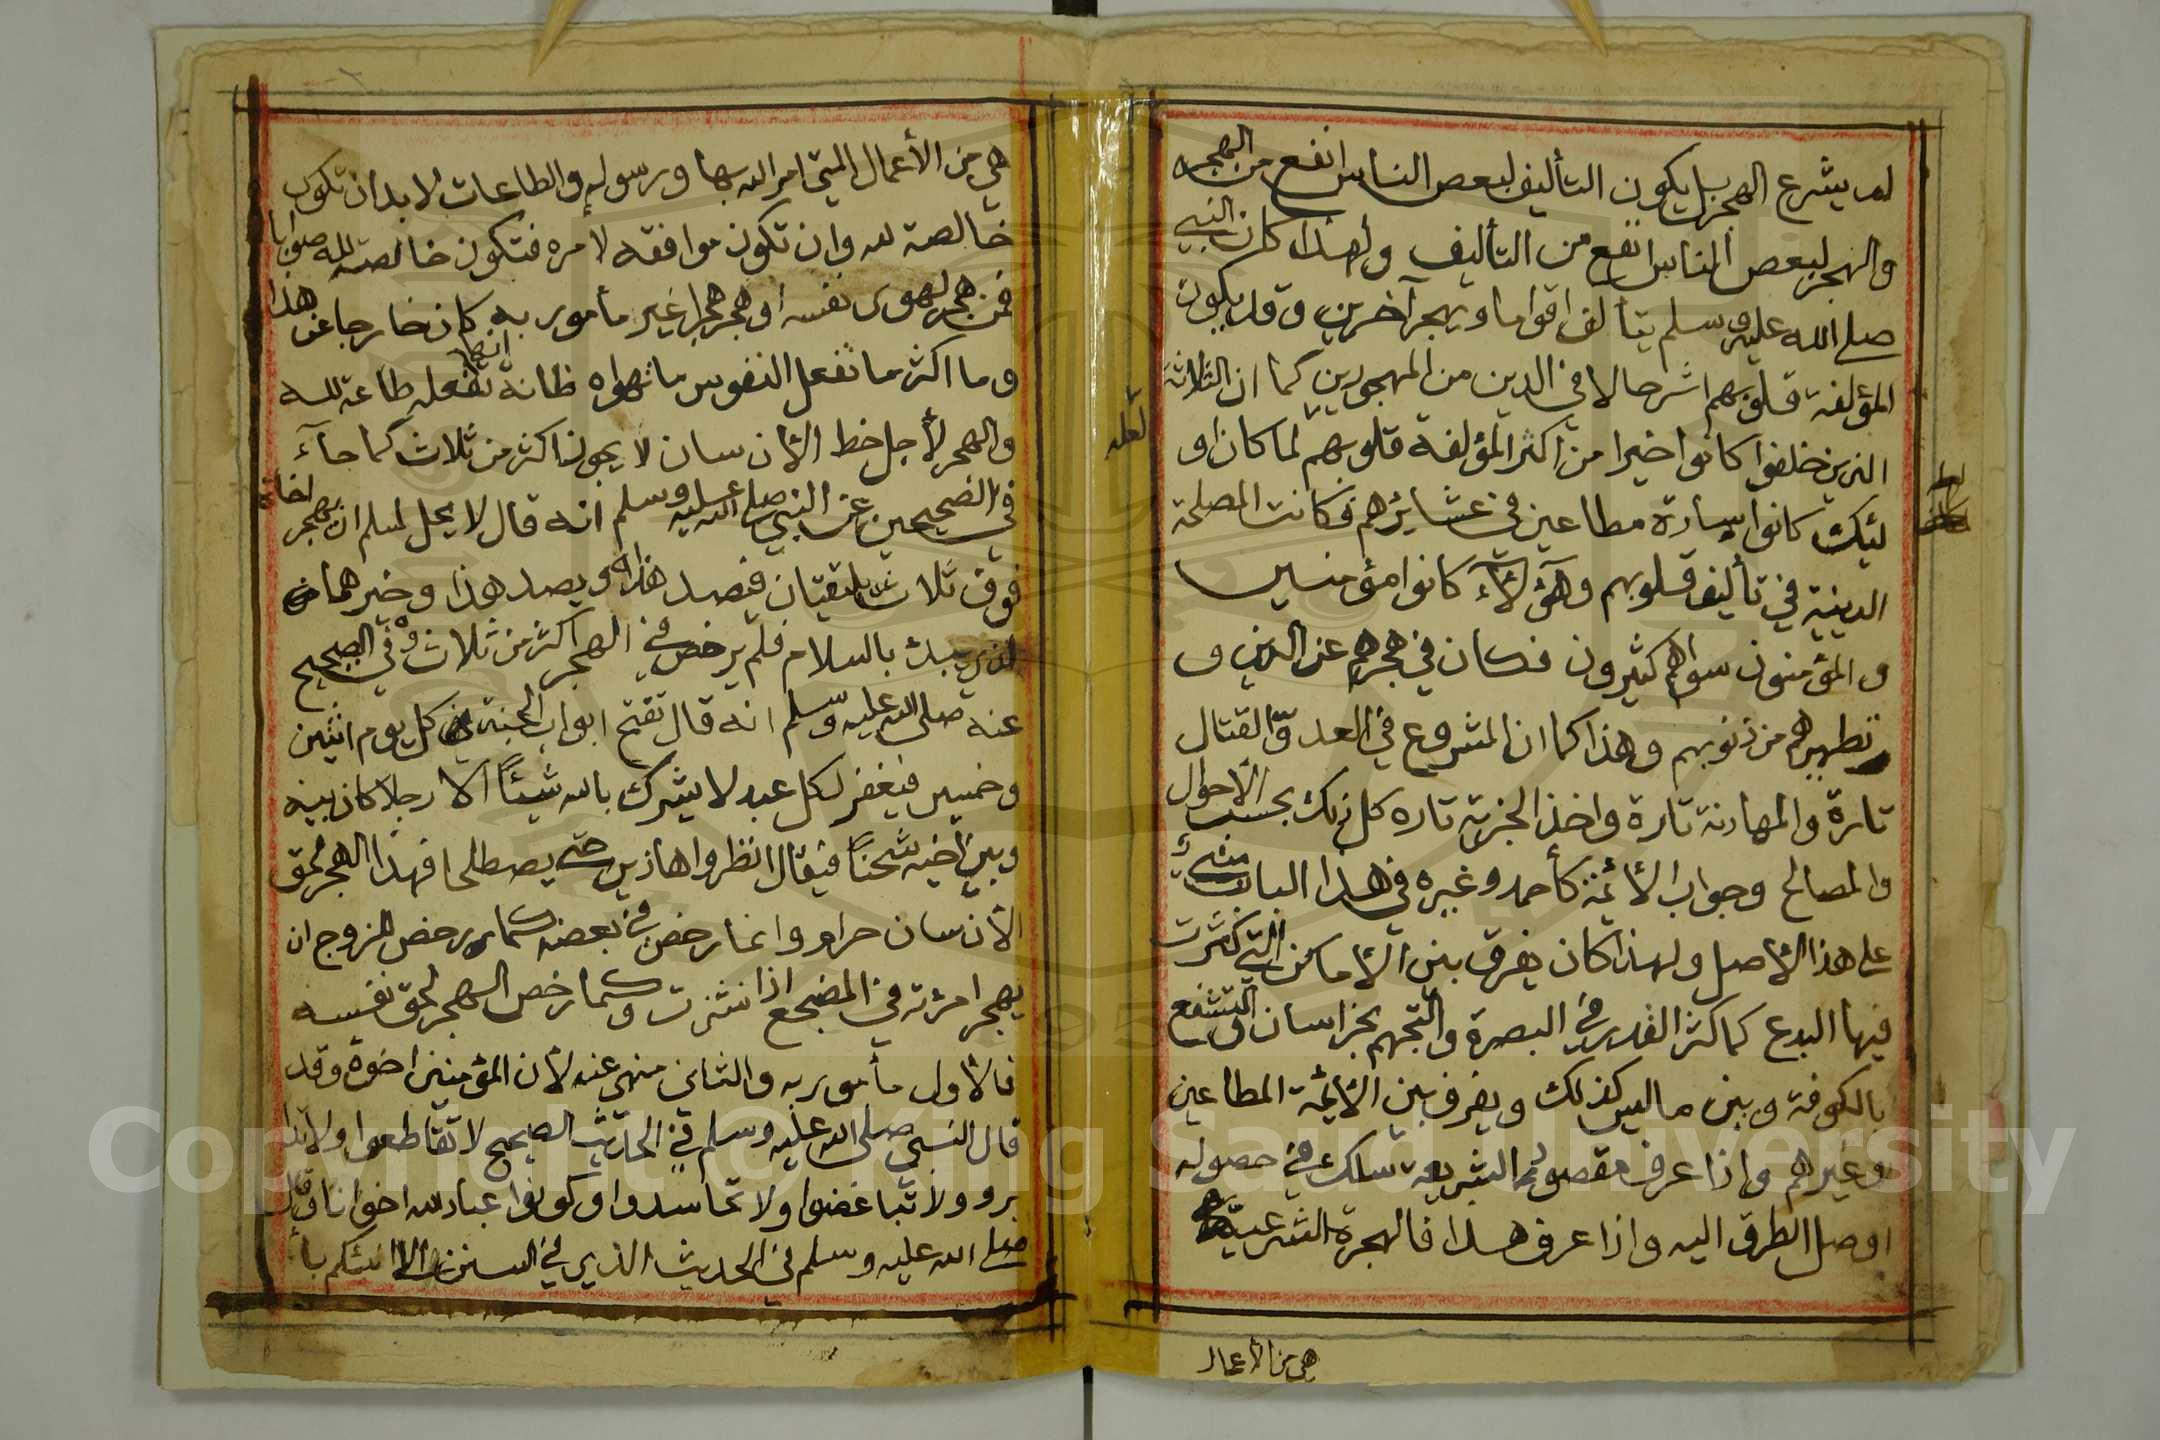 لم يشرع الهجر بل يكون التأليف لبعص الناس انفع من الهجر
والهجر لبعص الناس انفع من التأليف ولهذا كان النبي
صلى الله عليه وسلم يتألف اقواما ويهجر آخرين وقد يكون
المؤلفة قلوبهم اشر حالا في الدين من المهجورين كما ان الثلاثة
الذين خلفوا كانوا خيرا من اكثر المؤلفة قلوبهم لما كان او
لئك كانوا سادة مطاعين في عشائرهم فكانت المصلحة
الدينية في تأليف قلوبهم وهؤلاء كانوا مؤمنين
و المؤمنون سواهم كثيرون فكان في هجرهم عز الدين و
تطهيرهم من ذنوبهم وهذا كما ان المشروع في العدو القتال
تارة والمهادنة تارة واخذ الجزية تاره كل ذلك بحسب الاحوال
والمصالح وجواب الأئمة كأحمد وغيره في هذا الباب مبني
على هذا الأصل ولهذا كان يفرق بين الأماكن التي كثرت
فيها البدع كما كثر القدر في البصرة والتجهم بخراسان والتشيع
بالكوفة وبين ما ليس كذلك ويفرق بين الأئمة المطاعين
وغيرهم واذا عرف مقصود الشريعة سلك في حصوله
اوصل الطرق اليه واذا عرف هذا فالهجرة الشرعية
هي من الأعمال
لعله
هي من الأعمال التي امر الله بها ورسوله والطاعات لا بد ان تكون
خالصة لله وان تكون موافقه لأمره فتكون خالصة لله صوابا
فمن هجر لهوى نفسه او هجر هجرا غير مأمور به كان خارجا عن هذا
وما اكثر ما تفعل النفوس ما تهواه ظانة انها تفعله طاعة لله
والهجر لأجل خط الأنسان لا يجوز اكثر من ثلاث كما جآء
في الصحيحين عن النبي صلى الله عليه وسلم انه قال لا يحل لمسلم ان يهجر اخاه
فوق ثلاث يلتقيان فيصد هذا ويصد هذا وخيرهما
الذي يبدئ بالسلام فلم يرخص في الهجر اكثر من ثلاث وفي الصحيح
عنه صلى الله عليه وسلم انه قال تفتح ابواب الجنة كل يوم اثنين
وخميس فيغفر لكل عبد لا يشرك بالله شيئاً الا رجلا كان بينه
وبين اخيه شحناً فيقال انظروا هاذين حتى يصطلحا فهذا الهجر لحق
الأنسان حرام وانما رخص في بعضه كما رخص للزوج ان
يهجر امرئته في المضجع اذا نشزت وكما رخص الهجر لحق نفسه
فالأول مأمور به والثاني منهي عنه لأن المؤمنين اخوة وقد
قال النبي صلى الله عليه وسلم في الحديث الصحيح لا تقاطعوا ولا تدا
برو ولا تباغضوا ولا تحاسدوا وكونوا عباد لله اخوانا وقال
صلى الله عليه وسلم في الحديث الذي في السنن الا انبئكم بأ
Copyright © King Saud University